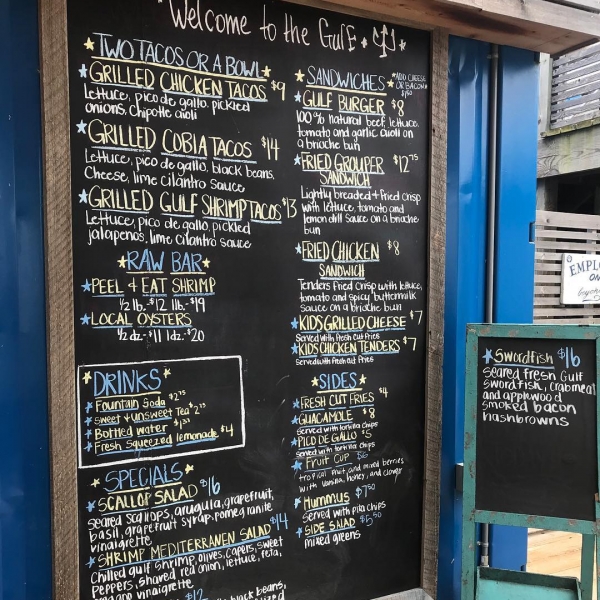 Welcome to the Gulf
TWO TACOS OR A BOWL
GRILLED CHICKEN TACOS $9
lettuce, pico de gallo, pickled
onions, chipotle aioli
GRILLED COBIA TACOS $14
Lettuce, pico de gallo, black beans,
Cheese, lime cilantro sauce
GRILLED GULF SHRIMP TACOS $13
Lettuce, pico de gallo, pickled
jalapeños, lime cilantro sauce
RAW BAR
PEEL + EAT SHRIMP
1/2 lb.-$12 1lb.-$19
LOCAL OYSTERS
1/2 dz.-$11 1dz.-$20
DRINKS
Fountain Soda $2.75
Sweet + unsweet Tea
Bottled water
Fresh Squeezed lemonade $4
SPECIALS
SCALLOP SALAD $16
Seared scallops, arugula, grapefruit,
basil, grapefruit syrup, pomegranate
vinaigrette
SHRIMP MEDITERRANEN SALAD $14
Chilled gulf shrimp, olives, capers, sweet
peppers, shaved red onion, lettuce, feta,
oregano vinaigrette
$12
black beans,
SANDWICHES
*ADD CHEESE
OR BACON
GULF BURGER $8
100% natural beef, lettuce,
tomato and garlic aioli on
a brioche bun
FRIED GROUPER $12.75
SANDWICH
Lightly breaded + fried crisp
with lettuce, tomato and
lemon dill sauce on a brioche
bun
FRIED CHICKEN $8
SANDWICH
Tenders fried crisp with lettuce,
tomato and spicy buttermilk
sauce on a brioche bun
KIDS GRILLED CHEESE $7
Served with fresh cut fries
KIDS CHICKEN TENDERS $7
Served with fresh cut fries
SIDES
FRESH CUT FRIES $4
GUACAMOLE $8
Served with tortilla chips
PICO DE GALLO $5
Served with tortilla chips
FRUIT CUP
tropical fruit and mixed berries
with vanilla, honey, and clover
HUMMUS $7.50
Served with pita chips
SIDE SALAD $5.50
mixed greens
EMPLO
ON
Swordfish $16
Seared fresh Gulf
Swordfish, crabmeat
and applewood
smoked bacon
hashbrowns